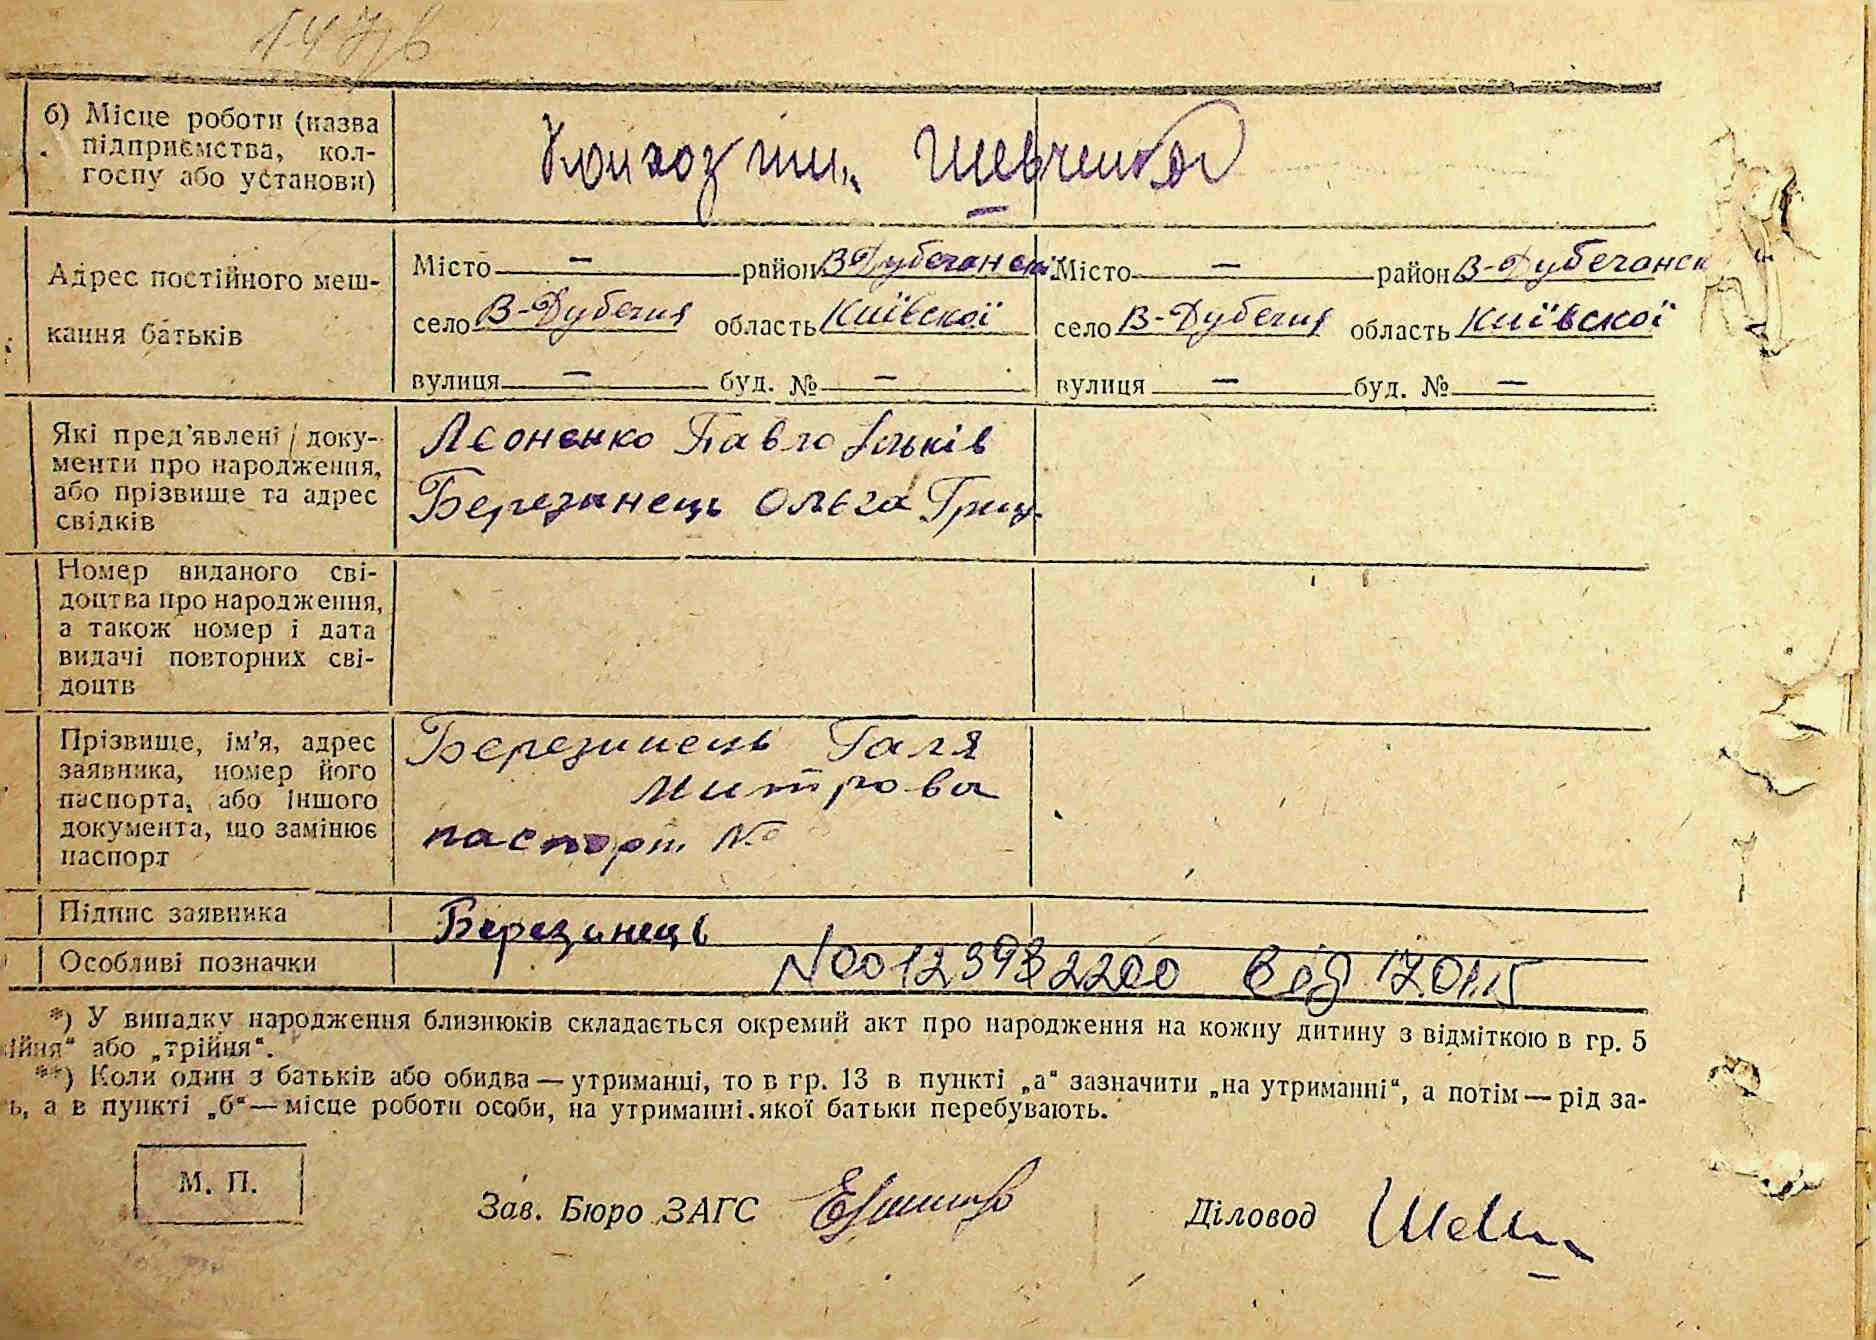 б) Місце роботи (назва
підприємства, кол-
госпу або установи)
Колхоз им. Шевченка
Адрес постійного меш-
кання батьків
Місто — район В-Дубечанськ Місто — район В-Дубечанск
село В-Дубечня область Київскої село В-Дубечня область Київскої
вулиця — буд. № — вулиця — буд. № —
Які пред'явлені доку-
менти про народження,
або прізвище та адрес
свідків
Леоненко Павло Ільків
Березинець Ольга Гриц.
Номер виданого сві-
доцтва про народження,
а також номер і дата
видачі повторних сві-
доцтв
Прізвище, ім'я, адрес
заявника, номер його
паспорта, або іншого
документа, що замінює
паспорт
Березинець Галя
Митрова
паспорт №
Підпис заявника Березинець
Особливі позначки №00123932200 від 17.01.15
*) У випадку народження близнюків складається окремий акт про народження на кожну дитину з відміткою в гр. 5
ійня" або „трійня".
**) Коли один з батьків або обидва — утриманці, то в гр. 13 в пункті „а" зазначити „на утриманні", а потім — рід за-
ь, а в пункті „б" — місце роботи особи, на утриманні якої батьки перебувають.
М. П.
Зав. Бюро ЗАГС
Діловод